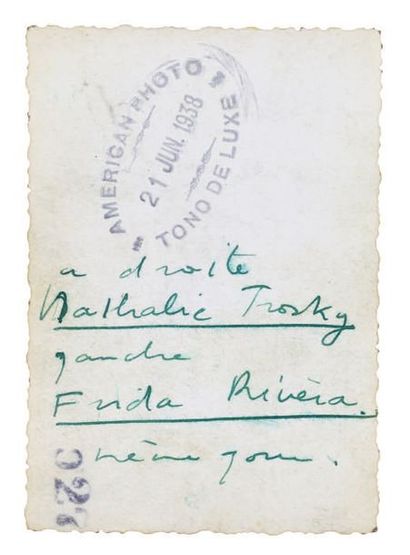 AMERICAN PHOTO
21 JUN. 1938
TONO DE LUXE
a droite
Nathalie Trosky
gauche
Frida Rivéra.
même jour.